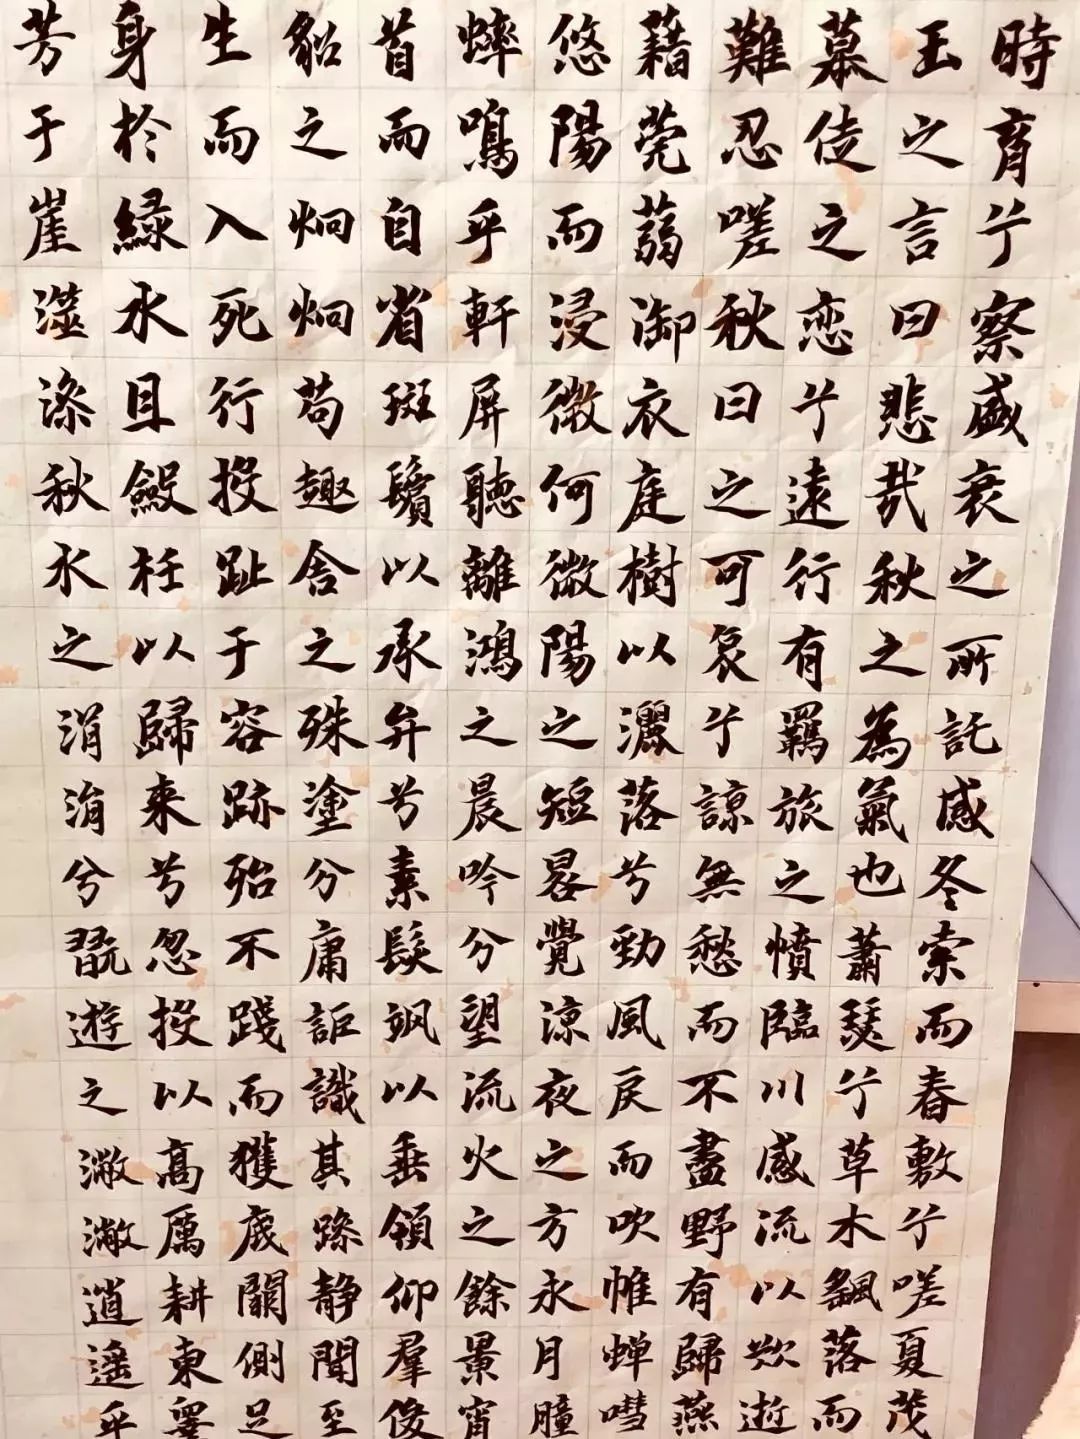 時育兮察盛衰之所託感冬索而春敷兮嗟夏茂
玉之言曰悲哉秋之為氣也蕭瑟兮草木飄落而
慕徒之恋兮遠行有羈旅之憤臨川感流以歎逝
難忍嗟秋日之可哀兮諒無愁而不盡野有歸燕
藉莞蒻御衣庭樹以灑落兮勁風戾而吹帷蝉嘒
悠陽而浸微何微陽之短晷覺涼夜之方永月朣
蟀鳴乎軒屏聽離鴻之晨吟兮望流火之餘景宵
首而自省斑鬢以承弁兮素髮颯以垂領仰羣俊
貂之炯炯苟趣舍之殊塗兮庸詎識其躁静聞至
生而入死行投趾于容跡殆不踐而獲底闕側足
身於綠水且斂衽以歸来兮忽投以高厲耕東皋
芳于崖澨澡秋水之涓涓兮翫遊之潎潎逍遥乎